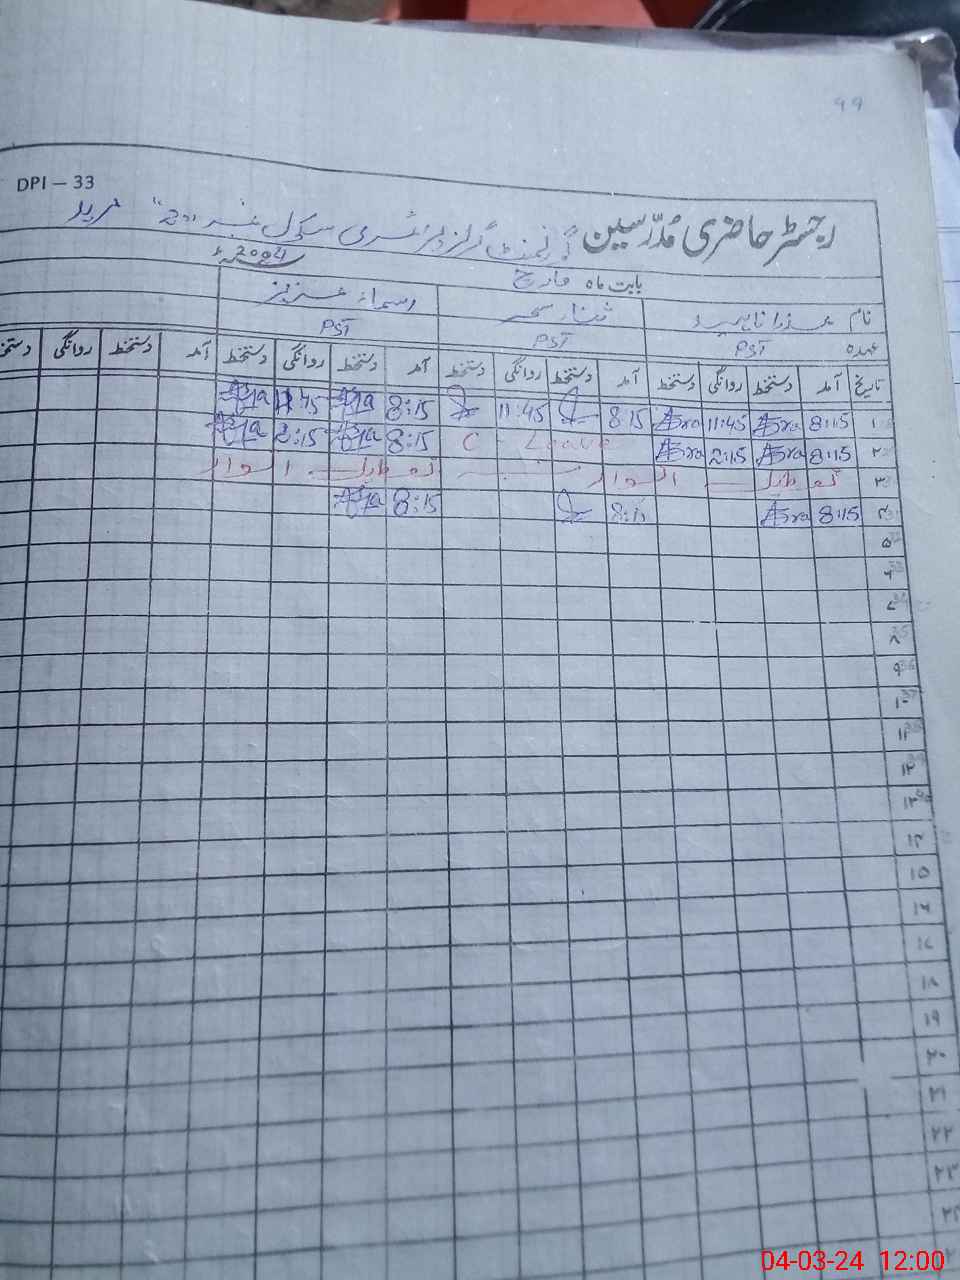 99
DPI – 33
رجسٹر حاضری مُدرّسین گورنمنٹ گرلز پرائمری سکول نمبر "2"
بابت ماہ مارچ 2024ء
نام عذرا ناہید ثناء سحر اسماء عزیز
عہدہ PST PST PST
تاریخ آمد دستخط روانگی دستخط آمد دستخط روانگی دستخط آمد دستخط روانگی دستخط آمد دستخط روانگی دستخط
۱ 8:15 Asra 11:45 Asra 8:15 11:45 8:15 11:45
۲ 8:15 Asra 2:15 Asra C - Leave 8:15 2:15
۳ تعطیل اتوار تعطیل اتوار
۴ 8:15 Asra 8:15 8:15
۵
۶
۷
۸
۹
۱۰
۱۱
۱۲
۱۳
۱۴
۱۵
۱۶
۱۷
۱۸
۱۹
۲۰
۲۱
۲۲
۲۳
۲۴
04-03-24 12:00